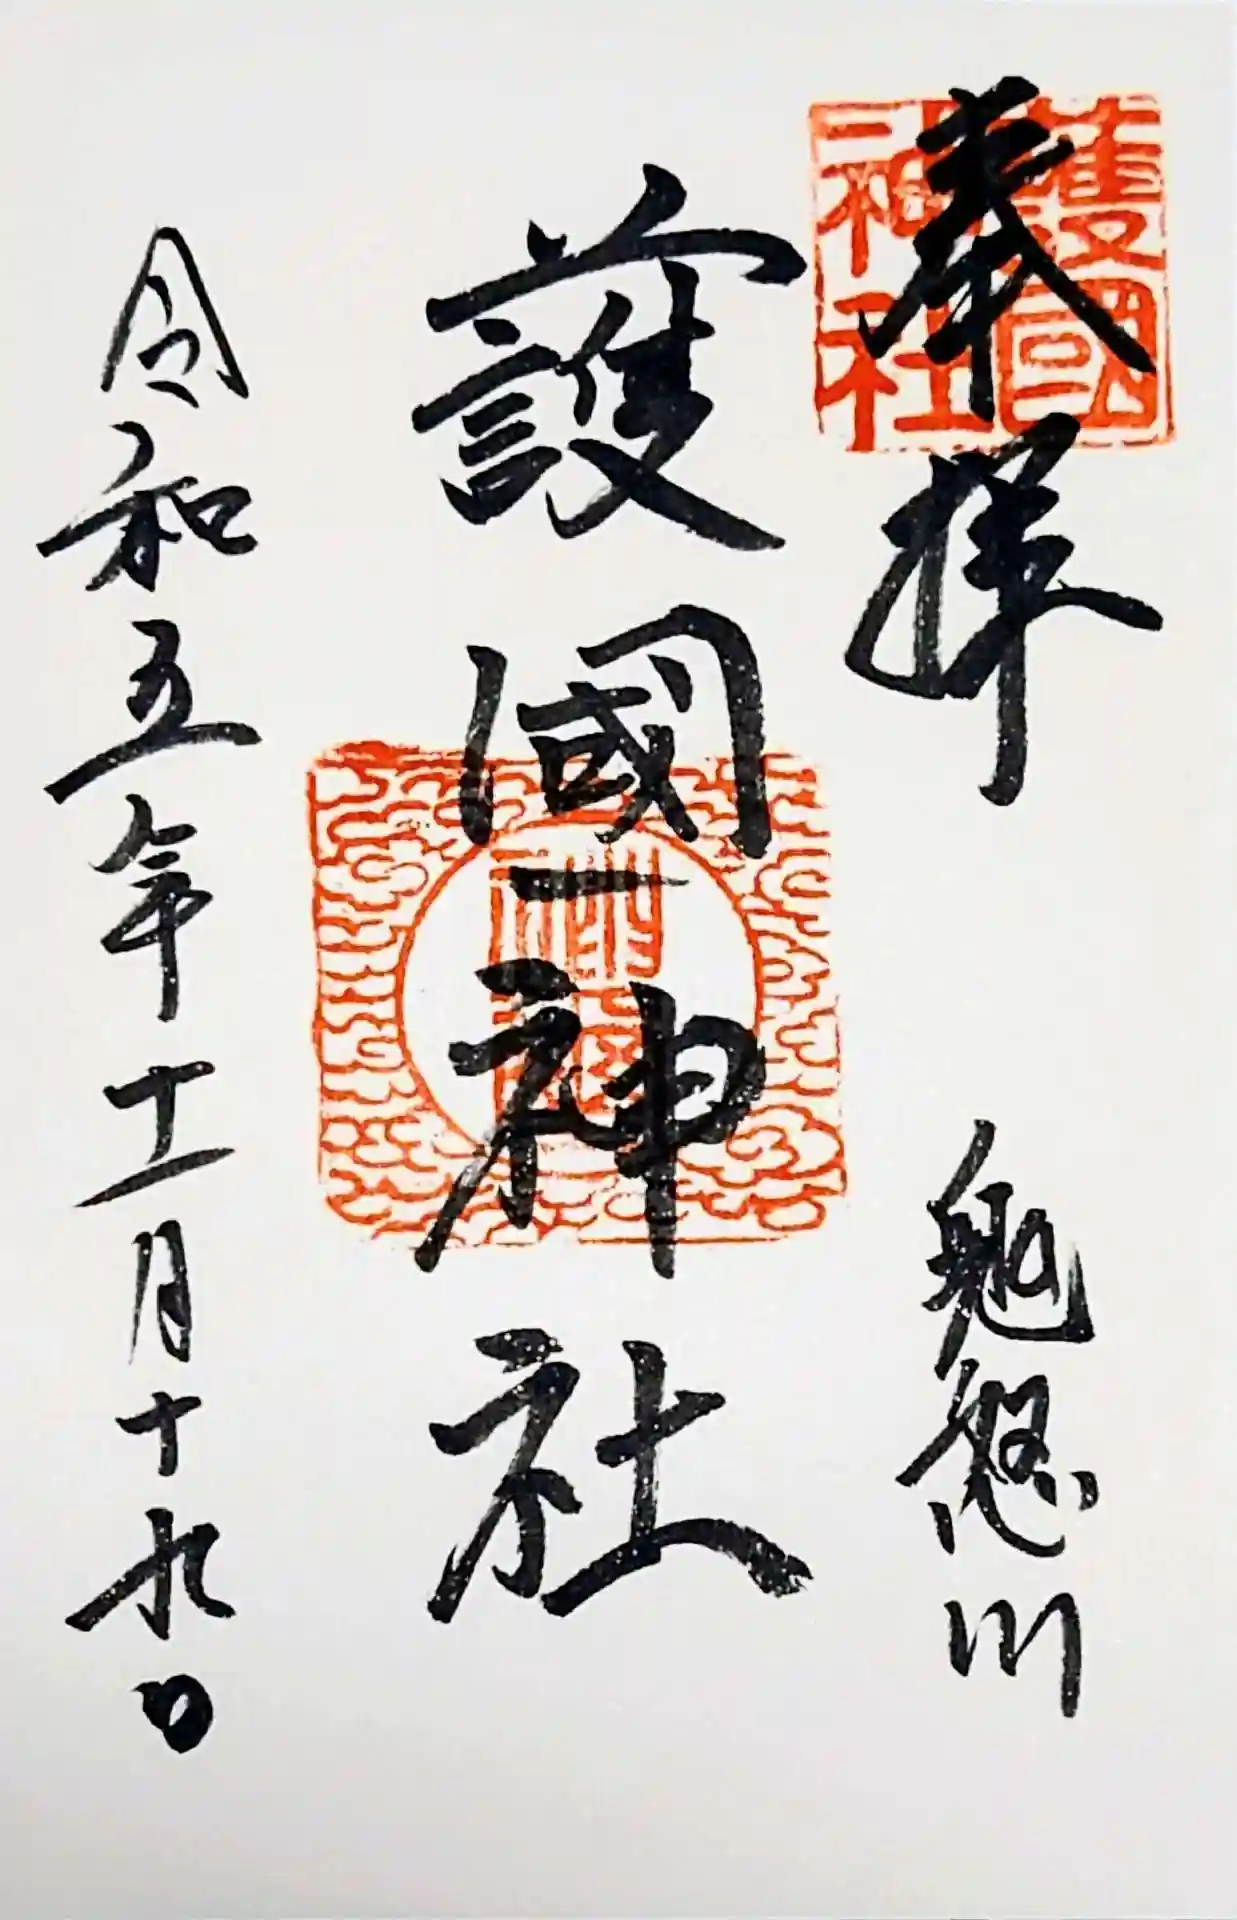 奉拝
鬼怒川
護國神社
令和五年十一月十九日
護國
神社